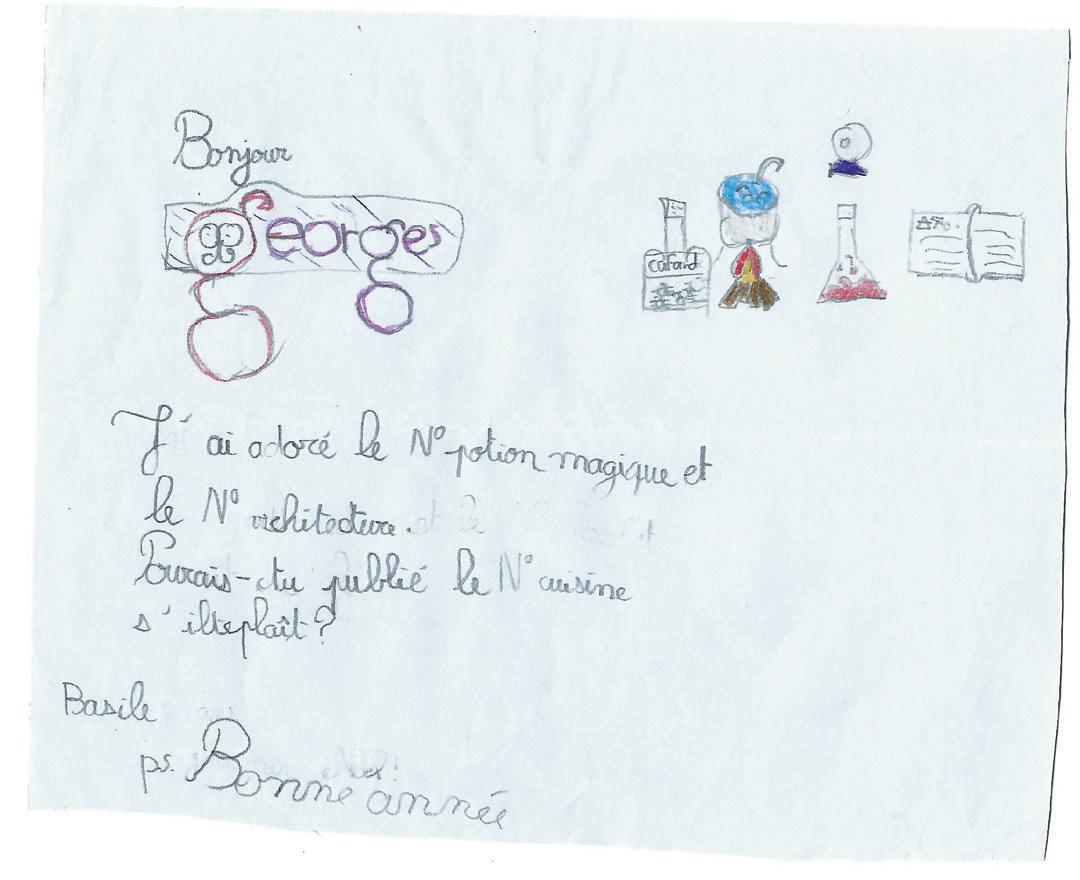 Bonjour
Georges
cafard
J'ai adoré le N° potion magique et
le N° architecture.
Pourais-tu publié le N° cuisine
s'ilteplaît?
Basile
ps. Bonne année